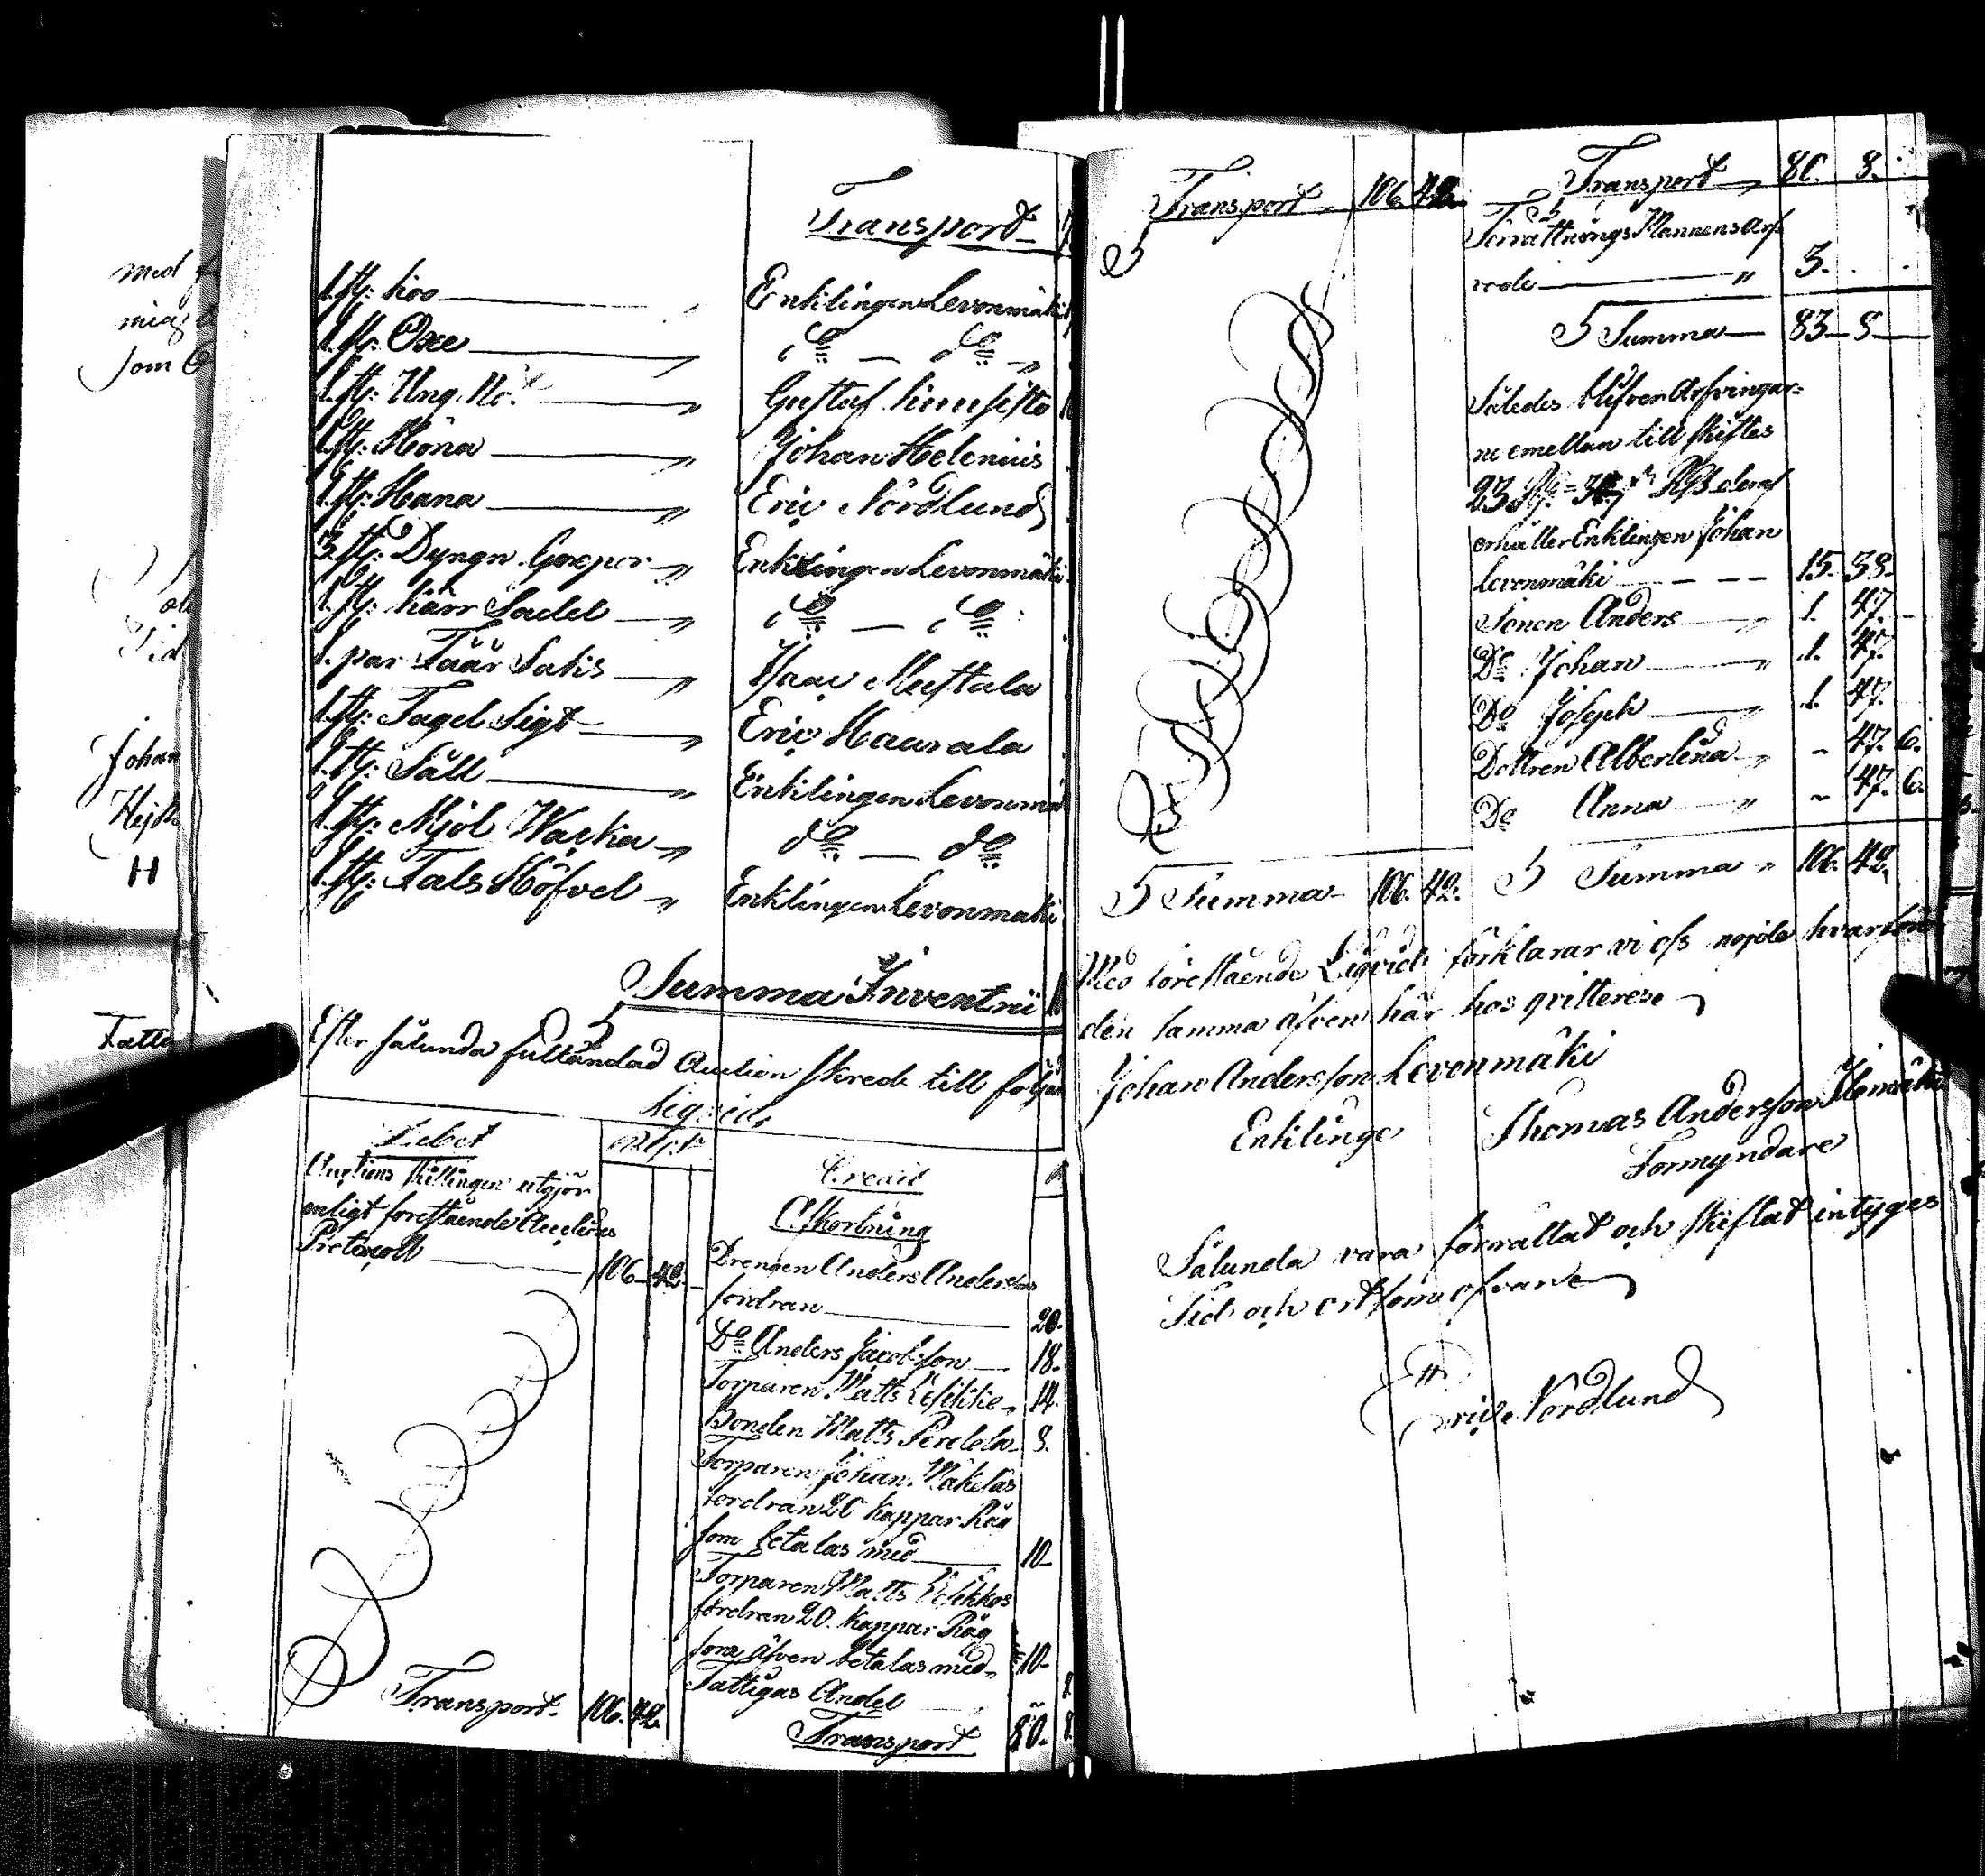 med
mig
som
Johan
Transport
1. st: Koo Enklingen Levonmäki
1. st: Oxe do do
1. st: Ung No: Gustaf
1. st: Höna Johan Helenius
1. st: Hana Eric Nordlund
3. st: Dyngn Greper Enklingen Levonmäki
1. st: Kärr Sadel do do
1. par Tåår Sakis Isaac Mustala
1. st: Tagel Sigt Eric Haurala
1. st: Såll Enklingen Levonmä
1. st: Mjöl Wacka do do
1. st: Tals Höfvel Enklingen Levonmäki
Summa Inventrii
Efter sålunda fultändad Auction skreds till följan
Liqvid,
Debet
Auctions skillingen utgjör
enligt forestående Auctions
Protocoll 106 42
Transport 106. 42.
Credit
Afkortning
Drengen Anders Anderssons
fordran 20.
Do Anders Jacobsson 18.
Torparen Matts 14.
Bonden Matts Perdela 8.
Torparen Johan Mäkeläs
fordran 20 kappar Råg
som betalas med 10
Torparen Matts
fordran 20. kappar Råg
som äfven betalas med 10
Fattigas Andel 8.
Transport 80. 8.
Transport 106 42.
S Summa 106. 42.
Transport 80. 8.
Förrättnings Mannens Arf
vode 3.
S Summa 83 8
Således blifver Arfvingar=
ne emellan till skiftes
23 deraf
erhåller Enklingen Johan
Levonmäki 15. 38.
Sonen Anders 1. 47.
Do Johan 1. 47.
Do Joseph 1. 47.
Dottren Albertina 47. 6.
Do Anna 47. 6.
S Summa 106. 42.
Med förestående Liqvid förklarar vi oss nöjde hvarföre
den samma äfven här hos qvitteres
Johan Andersson Levonmäki
Enklinge
Thomas Andersson
Formyndare
Sålunda vara förrättat och skiftat intyges
Tid och ort som ofvan
Eric Nordlund